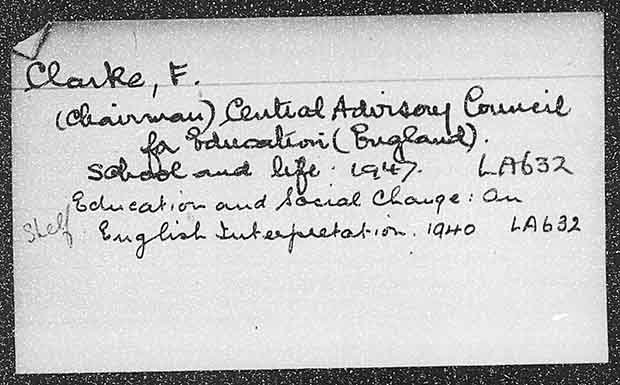 Clarke, F.
(Chairman) Central Advisory Council
for Education (England).
School and life. 1947. LA632
Education and Social Change: An
Shelf English Interpretation. 1940 LA632